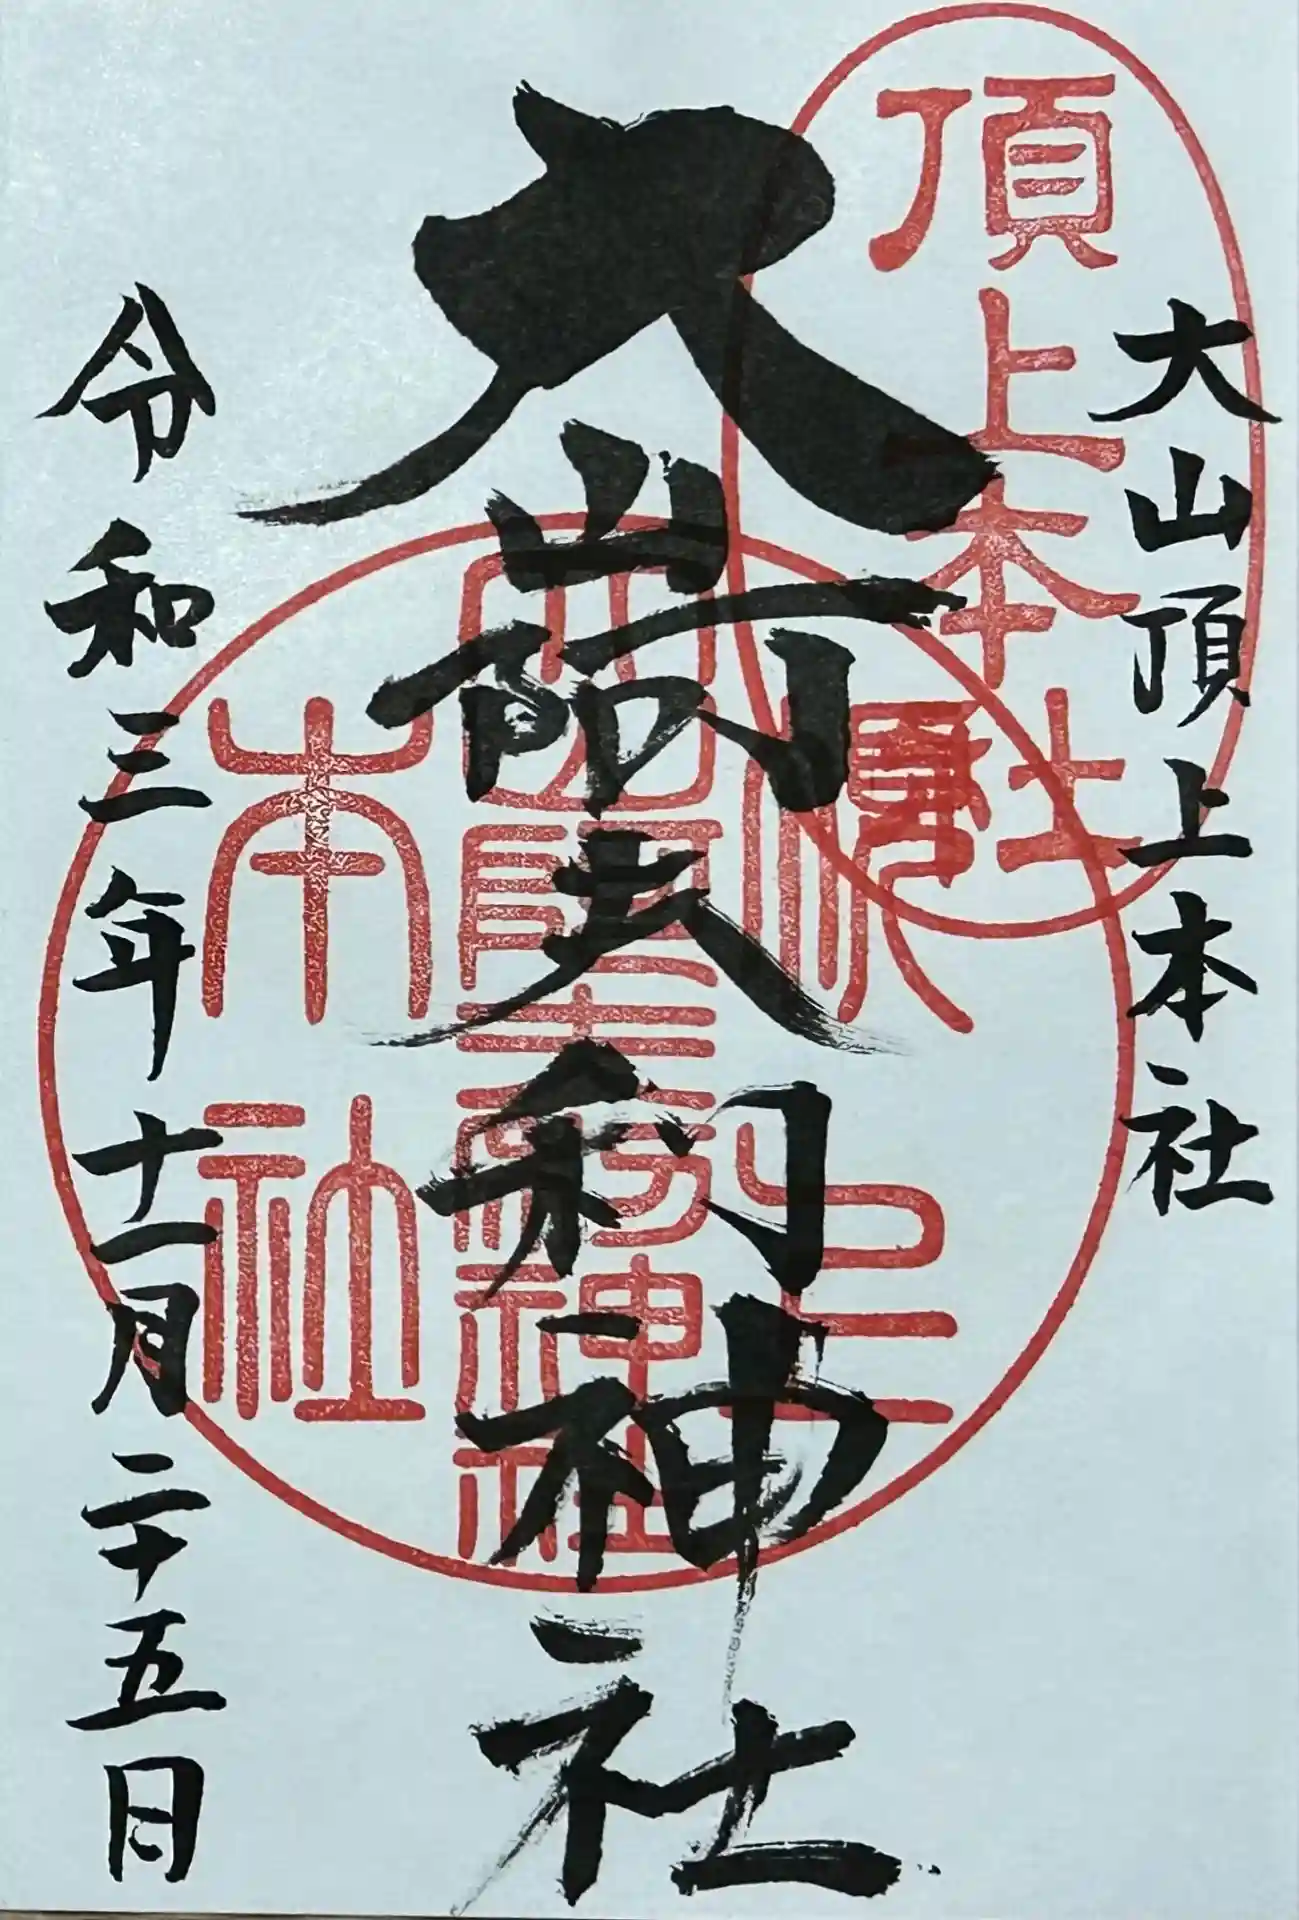 大山頂上本社
頂上本社
大山阿夫利神社
頂上
本社
令和三年十一月二十五日